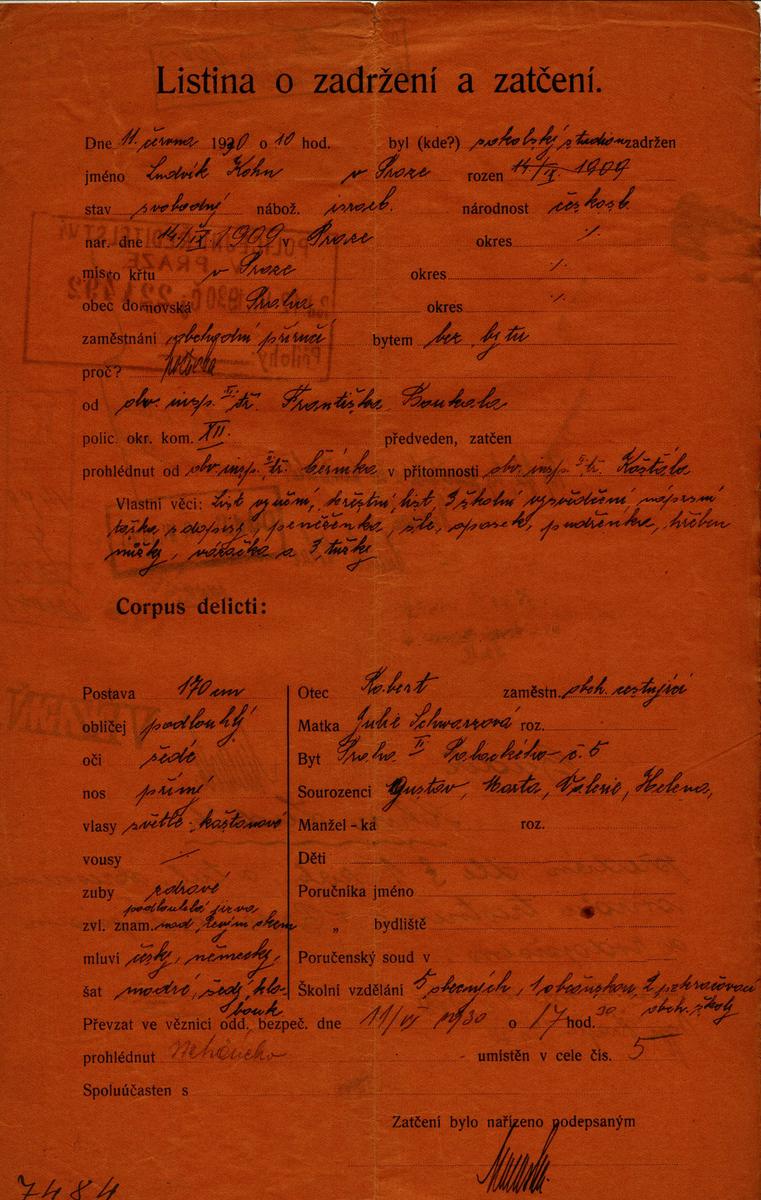 Listina o zadržení a zatčení.
Dne 11. června 1930 o 10 hod. byl (kde?) sokolský stadion zadržen
jméno Ludvík Kohn v Praze rozen 14/IX 1909
stav svobodný nábož. israel. národnost českosl.
nar. dne 14/IX 1909 v Praze okres ⁒
místo křtu v Praze okres ⁒
obec domovská Praha okres ⁒
zaměstnání obchodní příručí bytem bez bytu
proč?
od obv. insp. II. tř. Františka Boukala
polic. okr. kom. XII. předveden, zatčen
prohlédnut od obv. insp. II. tř. v přítomnosti obv. insp. II. tř. Košťála
Vlastní věci: List výuční, křestní list, 3 školní vysvědčení, náprsní
taška s dopisy, peněženka, šle, opasek, pudřenka, hřeben
nůžky, a 3 tužky
Corpus delicti:
Postava 170 cm
obličej podlouhlý
oči šedé
nos přímý
vlasy světle-kaštanové
vousy ⁒
zuby zdravé
podlouhlá jizva
zvl. znam. nad levým okem
mluví česky, německy,
šat modré, šedý klo-
bouk
Otec Robert zaměstn. obch. cestující
Matka Julie Schwarzová roz.
Byt Praha II Palackého č. 5
Sourozenci Gustav, Marta, Valerie, Helena,
Manžel-ka roz.
Děti
Poručníka jméno
„ bydliště
Poručenský soud v
Školní vzdělání 5 obecných, 1 občanskou, 2 pokračovací
obch. školy
Převzat ve věznici odd. bezpeč. dne 11/VI 1930 o 17 hod. 30
prohlédnut umístěn v cele čís. 5
Spoluúčasten s
Zatčení bylo nařízeno podepsaným
7484